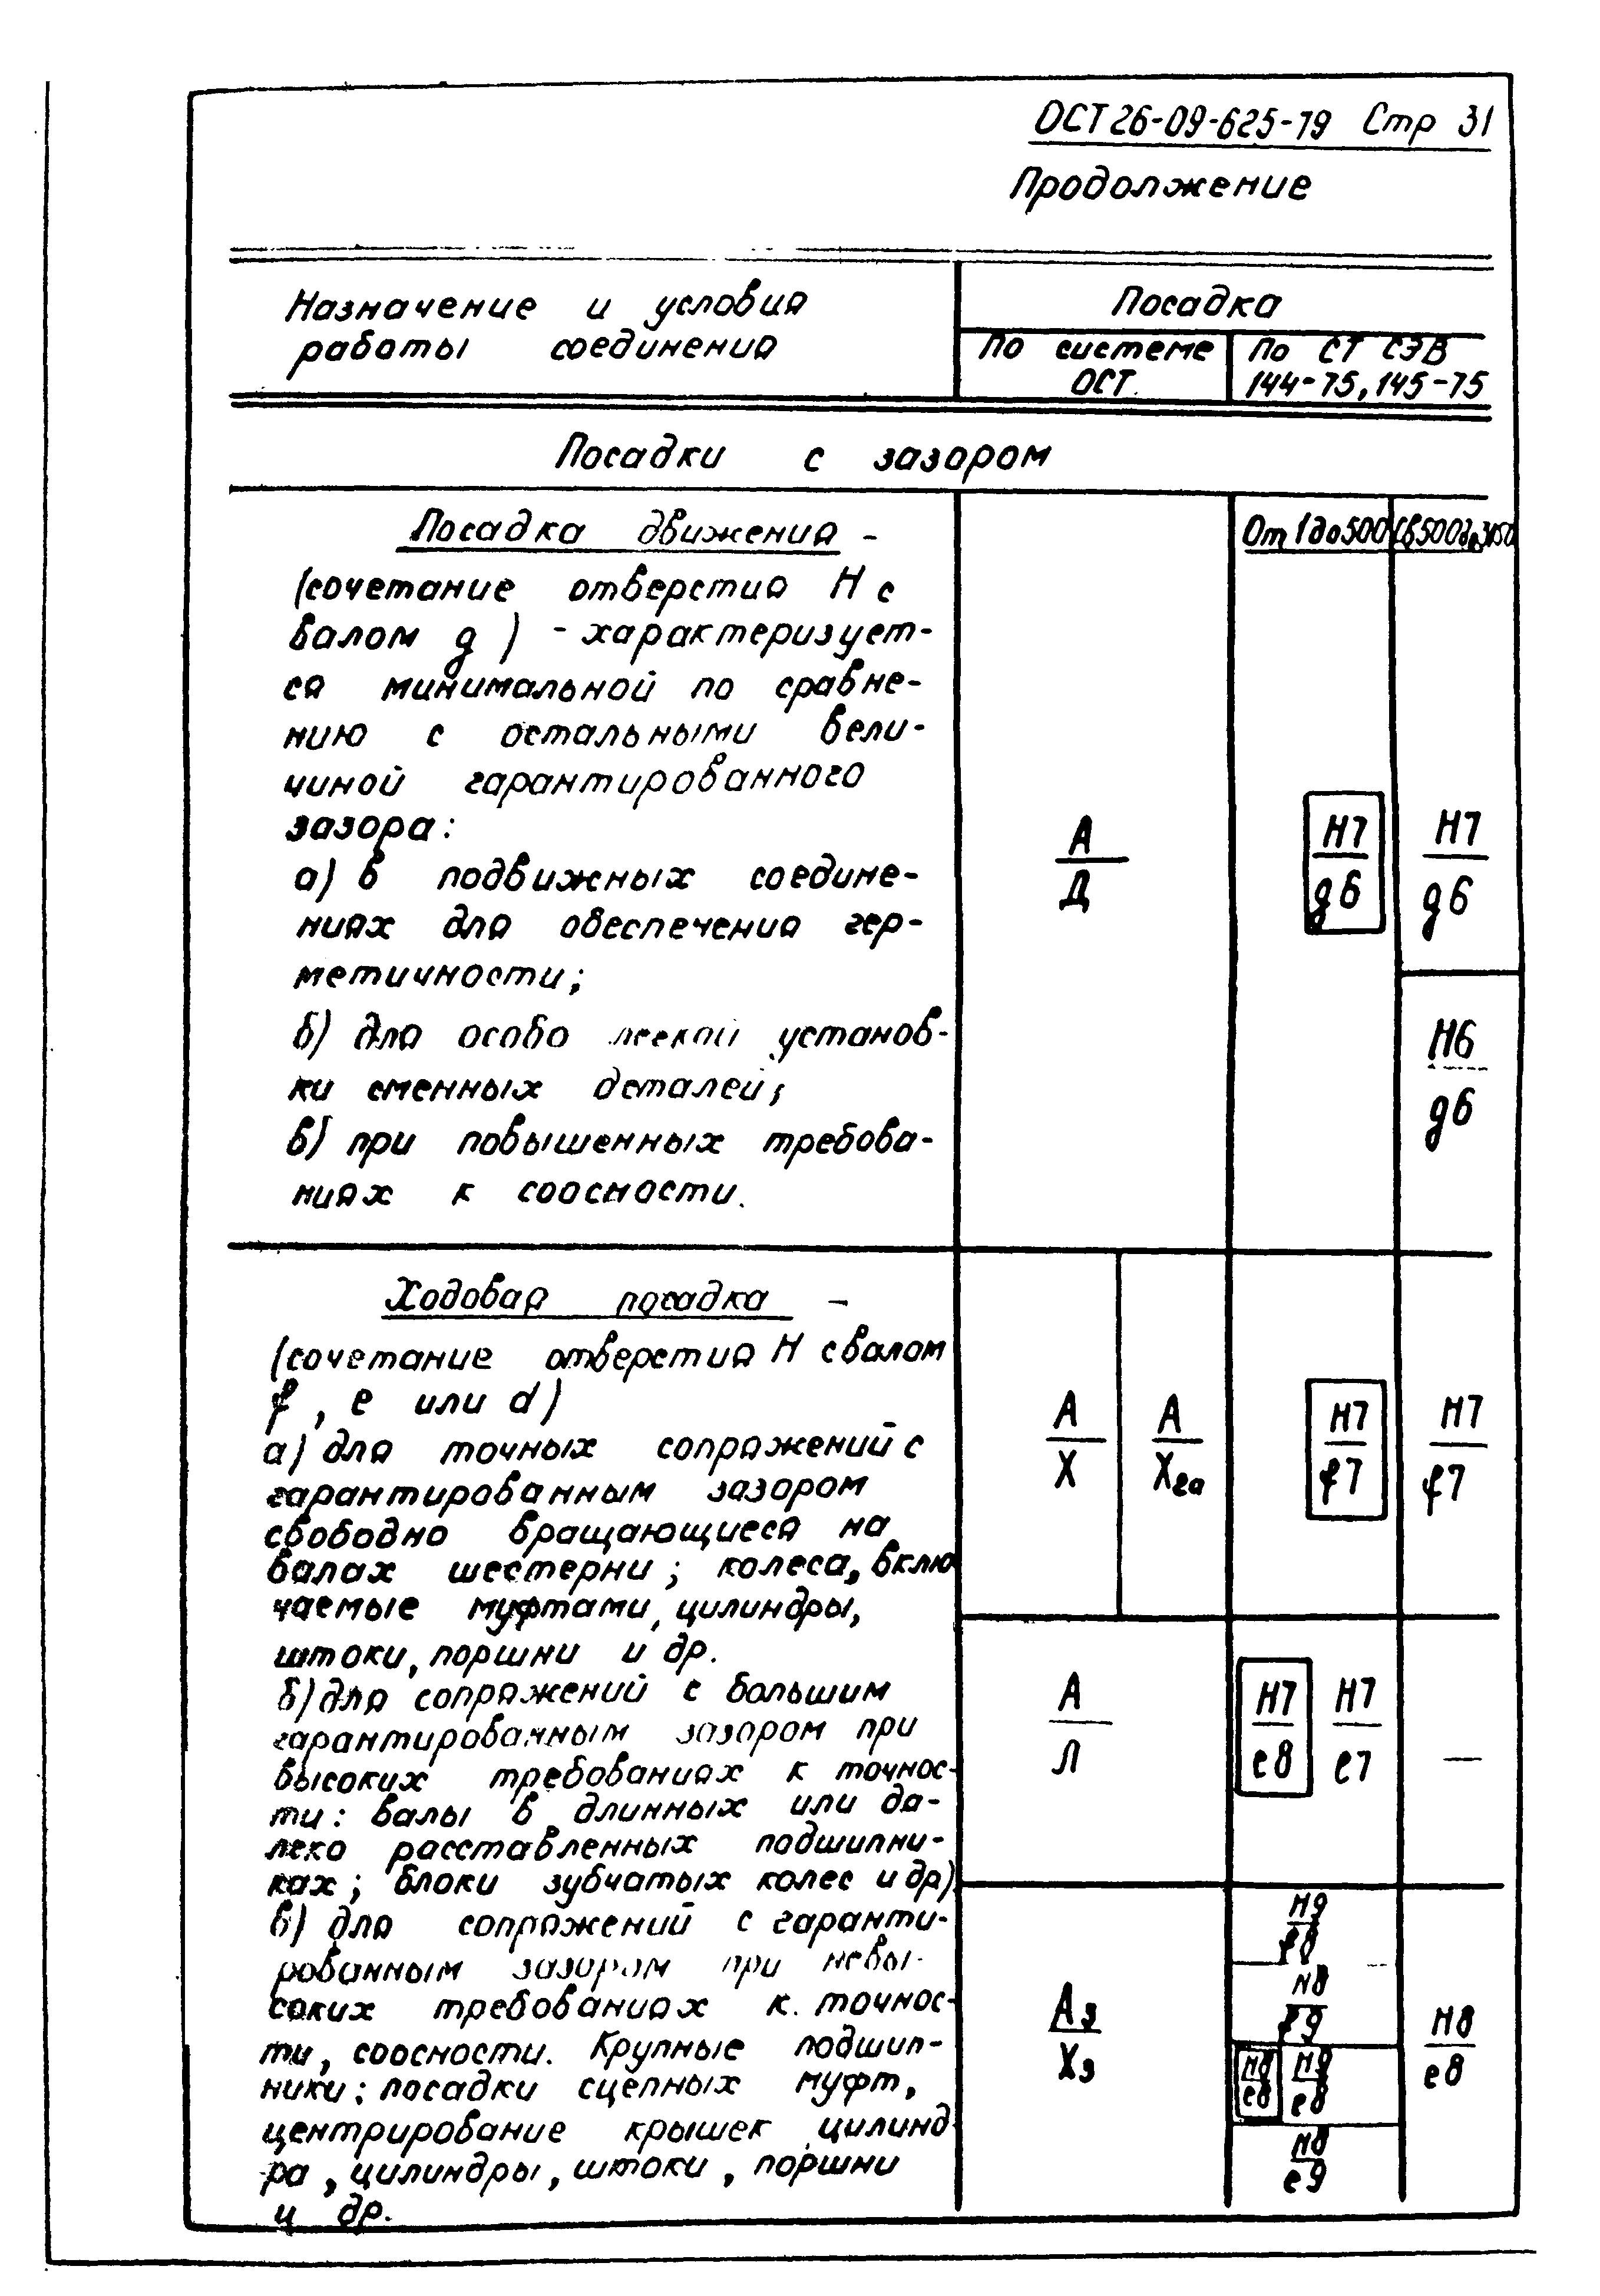 ОСТ 26-09-625-79 Стр 31
Продолжение
Назначение и условия
работы соединения
Посадка
По системе
ОСТ.
По СТ СЭВ
144-75, 145-75
Посадки с зазором
От 1 до 500
Св 500 до 3150
Посадка движения -
(сочетание отверстия H с
валом g ) - характеризует-
ся минимальной по сравне-
нию с остальными вели-
чиной гарантированного
зазора:
а) в подвижных соедине-
ниях для обеспечения гер-
метичности;
б) для особо легкой установ-
ки сменных деталей;
в) при повышенных требова-
ниях к соосности.
А
Д
H7
g6
H7
g6
H6
g6
Ходовая посадка -
(сочетание отверстия H с валом
f, e или d)
а) для точных сопряжений с
гарантированным зазором
свободно вращающиеся на
валах шестерни; колеса, вклю
чаемые муфтами, цилиндры,
штоки, поршни и др.
А
Х
А
Х2а
H7
f7
H7
f7
б) для сопряжений с большим
гарантированным зазором при
высоких требованиях к точнос-
ти: валы в длинных или да-
леко расставленных подшипни-
ках; блоки зубчатых колес и др)
А
Л
H7
e8
H7
e7
—
в) для сопряжений с гаранти-
рованным зазором при невы-
соких требованиях к. точнос-
ти, соосности. Крупные подшип-
ники; посадки сцепных муфт,
центрирование крышек цилинд
ра, цилиндры, штоки, поршни
и др.
А3
Х3
H9
f8
H8
f9
H8
e8
H9
e8
H8
e9
H8
e8